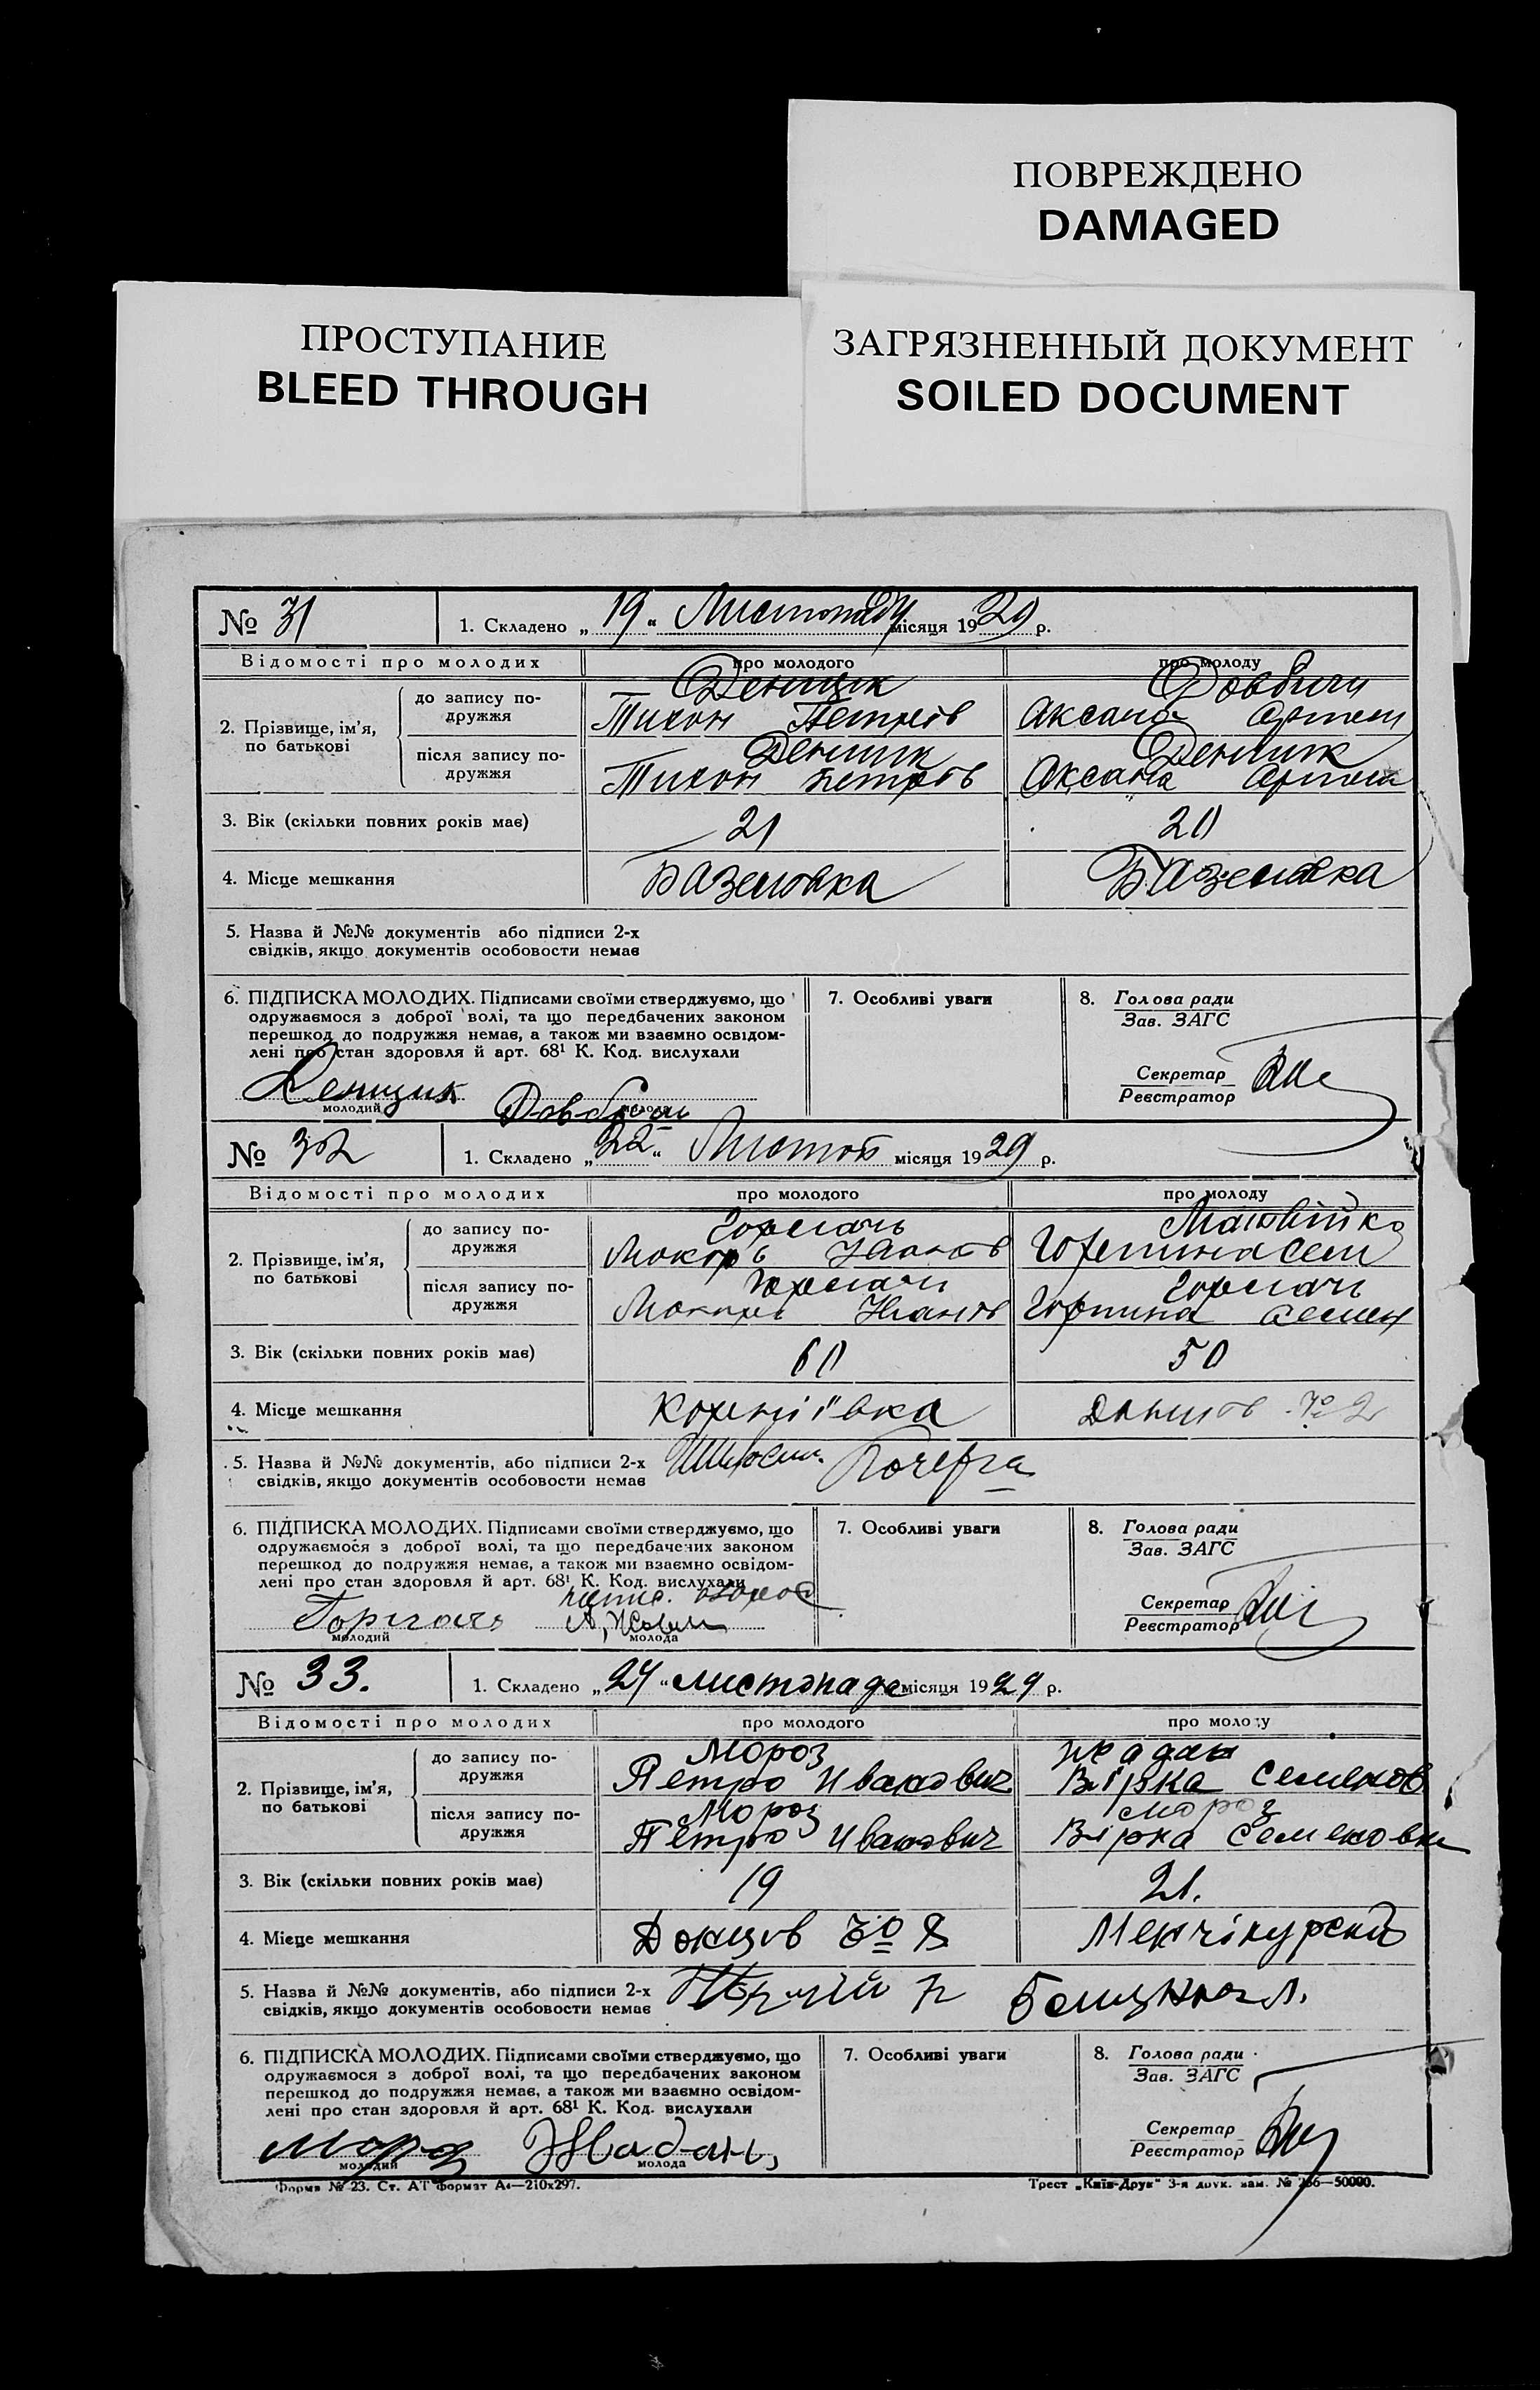 ПОВРЕЖДЕНО
DAMAGED
ПРОСТУПАНИЕ
BLEED THROUGH
ЗАГРЯЗНЕННЫЙ ДОКУМЕНТ
SOILED DOCUMENT
№ 31 1. Складено „ 19 “ Листопаду місяця 1929 р.
Відомості про молодих про молодого про молоду
Денщик
до запису по-
дружжя
Тихон Петров Аксана Артем
2. Прізвище, ім’я,
по батькові
Денщик Денщик
після запису по-
дружжя
Тихон Петров Аксана Артем
3. Вік (скільки повних років має) 21 20
4. Місце мешкання
5. Назва й №№ документів або підписи 2-х
свідків, якщо документів особовости немає
6. ПІДПИСКА МОЛОДИХ. Підписами своїми стверджуємо, що
одружаємося з доброї волі, та що передбачених законом
перешкод до подружжя немає, а також ми взаємно освідом-
лені про стан здоровля й арт. 68¹ К. Код. вислухали
7. Особливі уваги
8. Голова ради
Зав. ЗАГС
Секретар
Реєстратор
Денщик
молодий молода
№ 32 1. Складено „ 22 “ Листоп місяця 1929 р.
Відомості про молодих про молодого про молоду
до запису по-
дружжя
2. Прізвище, ім’я,
по батькові
після запису по-
дружжя
Горпина Семен
3. Вік (скільки повних років має) 60 50
4. Місце мешкання Корніївка
5. Назва й №№ документів, або підписи 2-х
свідків, якщо документів особовости немає
Кочерга
6. ПІДПИСКА МОЛОДИХ. Підписами своїми стверджуємо, що
одружаємося з доброї волі, та що передбачених законом
перешкод до подружжя немає, а також ми взаємно освідом-
лені про стан здоровля й арт. 68¹ К. Код. вислухали
7. Особливі уваги
8. Голова ради
Зав. ЗАГС
Секретар
Реєстратор
молодий молода
№ 33. 1. Складено „ 24 “ листопада місяця 1929 р.
Відомості про молодих про молодого про молоду
Мороз Жадан
до запису по-
дружжя
Петро Иванович Вірка Семенов
2. Прізвище, ім’я,
по батькові
Мороз Мороз
після запису по-
дружжя
Петро Иванович Вірка Семеновн
3. Вік (скільки повних років має) 19 21.
4. Місце мешкання Менчікурськ
5. Назва й №№ документів, або підписи 2-х
свідків, якщо документів особовости немає
6. ПІДПИСКА МОЛОДИХ. Підписами своїми стверджуємо, що
одружаємося з доброї волі, та що передбачених законом
перешкод до подружжя немає, а також ми взаємно освідом-
лені про стан здоровля й арт. 68¹ К. Код. вислухали
7. Особливі уваги
8. Голова ради
Зав. ЗАГС
Секретар
Реєстратор
Мороз Жадан
молодий молода
Форма № 23. Ст. АТ формат А4—210х297.
Трест „Київ-Друк“ 3-я друк. зам. № 256—50000.